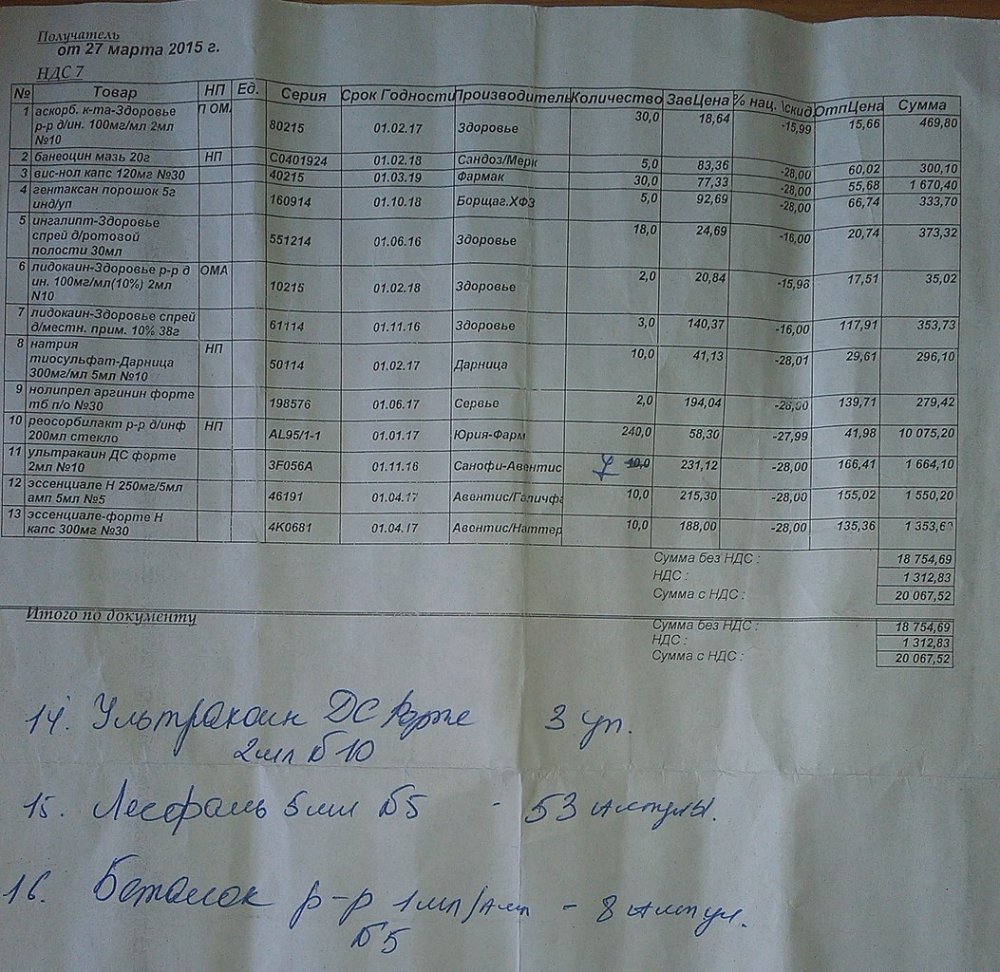 Получатель
от 27 марта 2015 г.
НДС 7
№ Товар НП Ед. Серия Срок Годности Производитель Количество ЗавЦена % нац. \скид ОтпЦена Сумма
1 аскорб. к-та-Здоровье П ОМА 80215 01.02.17 Здоровье 30,0 18,64 -15,99 15,66 469,80
р-р д/ин. 100мг/мл 2мл
№10
2 банеоцин мазь 20г НП C0401924 01.02.18 Сандоз/Мерк 5,0 83,36 -28,00 60,02 300,10
3 вис-нол капс 120мг №30 40215 01.03.19 Фармак 30,0 77,33 -28,00 55,68 1 670,40
4 гентаксан порошок 5г 160914 01.10.18 Борщаг.ХФЗ 5,0 92,69 -28,00 66,74 333,70
инд/уп
5 ингалипт-Здоровье 551214 01.06.16 Здоровье 18,0 24,69 -16,00 20,74 373,32
спрей д/ротовой
полости 30мл
6 лидокаин-Здоровье р-р д ОМА 10215 01.02.18 Здоровье 2,0 20,84 -15,98 17,51 35,02
ин. 100мг/мл(10%) 2мл
N10
7 лидокаин-Здоровье спрей 61114 01.11.16 Здоровье 3,0 140,37 -16,00 117,91 353,73
д/местн. прим. 10% 38г
8 натрия НП 50114 01.02.17 Дарница 10,0 41,13 -28,01 29,61 296,10
тиосульфат-Дарница
300мг/мл 5мл №10
9 нолипрел аргинин форте 198576 01.06.17 Сервье 2,0 194,04 -28,00 139,71 279,42
тб п/о №30
10 реосорбилакт р-р д/инф НП AL95/1-1 01.01.17 Юрия-Фарм 240,0 58,30 -27,99 41,98 10 075,20
200мл стекло
11 ультракаин ДС форте 3F056A 01.11.16 Санофи-Авентис 10,0 231,12 -28,00 166,41 1 664,10
2мл №10
12 эссенциале Н 250мг/5мл 46191 01.04.17 Авентис/Галичфа 10,0 215,30 -28,00 155,02 1 550,20
амп 5мл №5
13 эссенциале-форте Н 4K0681 01.04.17 Авентис/Наттер 10,0 188,00 -28,00 135,36 1 353,60
капс 300мг №30
Сумма без НДС : 18 754,69
НДС : 1 312,83
Сумма с НДС : 20 067,52
Итого по документу
Сумма без НДС : 18 754,69
НДС : 1 312,83
Сумма с НДС : 20 067,52
14. Ультракаин ДС форте 3 уп.
2мл №10
15. Лесфаль 5мл №5 - 53 ампулы.
16. Беталок р-р 1мл/амп - 8 ампул.
№5